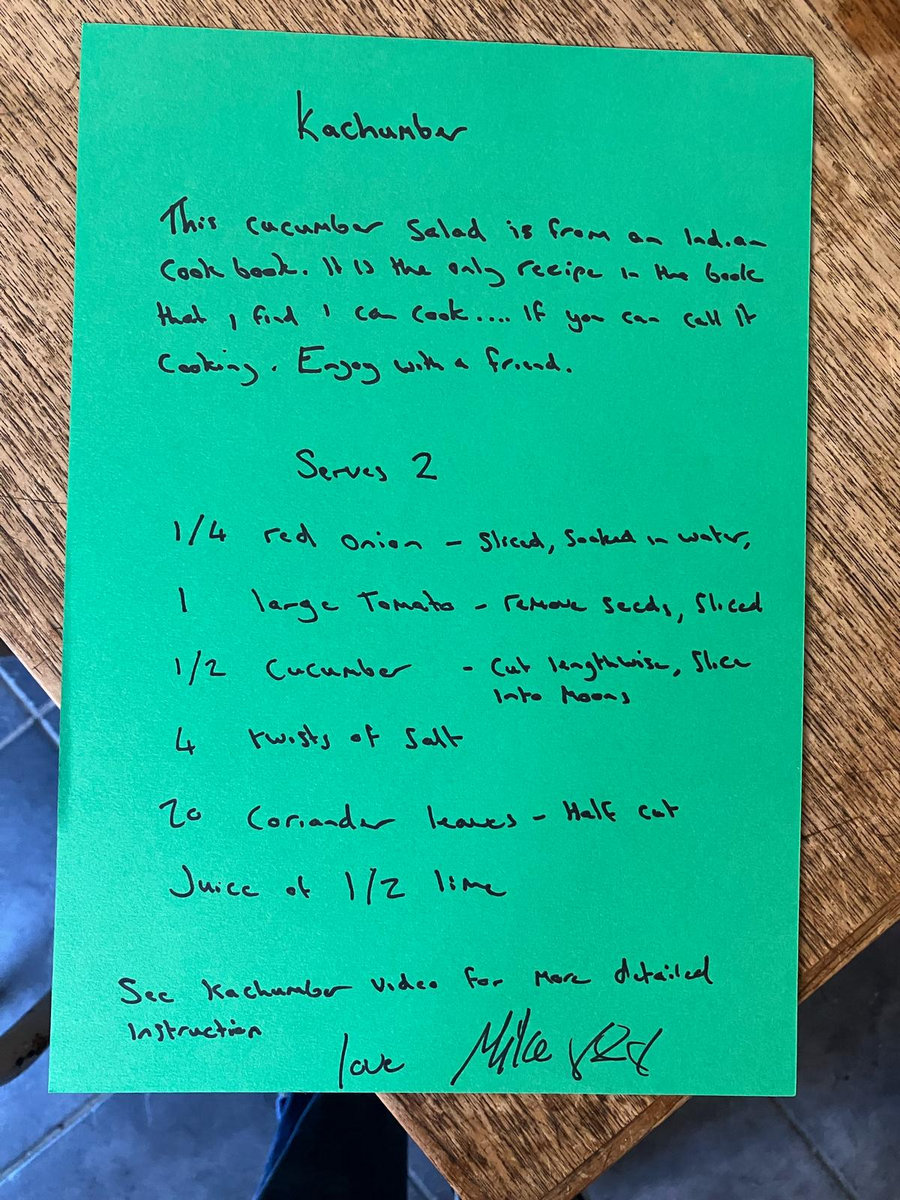 Kachumber
This cucumber salad is from an Indian
Cook book. It is the only recipe in the book
that I find I can cook.... If you can call it
Cooking. Enjoy with a friend.
Serves 2
1/4 red onion - Sliced, Soaked in water,
1 large Tomato - remove seeds, Sliced
1/2 Cucumber - Cut lengthwise, Slice
Into Moons
4 twists of Salt
20 Coriander leaves - Half cut
Juice of 1/2 lime
See Kachumber video for more detailed
Instruction
love Mike